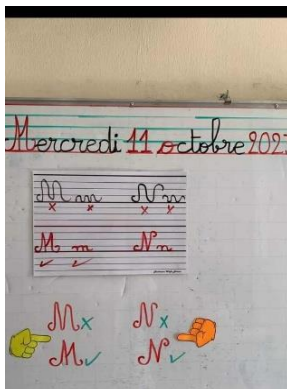 Mercredi 11 octobre 202
M m N n
M m N n
M N
M N